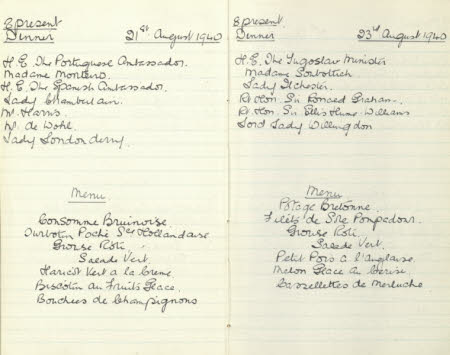 8 present
Dinner 21st August 1940
H.E. The Portuguese Ambassador.
Madame Monteiro.
H.E. The Spanish Ambassador.
Lady Chamberlain.
Mr Harris.
Mr de Wohl.
Lady Londonderry.
Menu
Consomme Bruinoise.
Turbotin Poché Sce Hollandaise
Grouse Roti
Salade Vert.
Haricot Vert a la Creme.
Biscotin au Fruits Glace.
Bouchees de Champignons
8 present
Dinner 23rd August 1940
H.E. The Yugoslav Minister
Madame
Lady Ilchester.
Rt Hon. Sir Ronald Graham.
Rt Hon Sir Ellis Hume-Williams
Lord Lady Willingdon
Menu
Potage Bretonne.
Filets de Sole Pompadour.
Grouse Roti.
Salade Vert.
Petit Pois a l'anglaise.
Melon Glace au Cerise.
Cassellettes de Merluche.